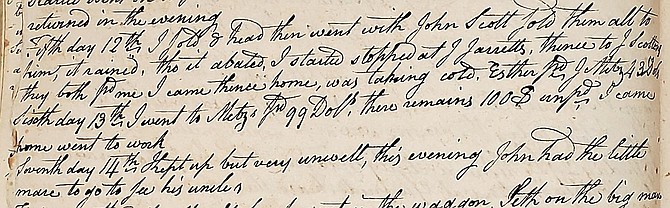 returned in the evening
Fifth day 12th, I sold 8 head then went with John Scott sold them all to
him, it rained, tho it abated, I started stopped at J Jarretts, thence to J Scotts
they both pd me I came thence home, was taking cold. Esther pd J Metz 43 Dols
Sixth day 13th, I went to Metzs pd 99 Dols, there remains 100$ unpd, I came
home went to work
Seventh day 14th, I kept up but very unwell, this evening John had the little
mare to go to see his uncles
the waggon, Seth on the big mare